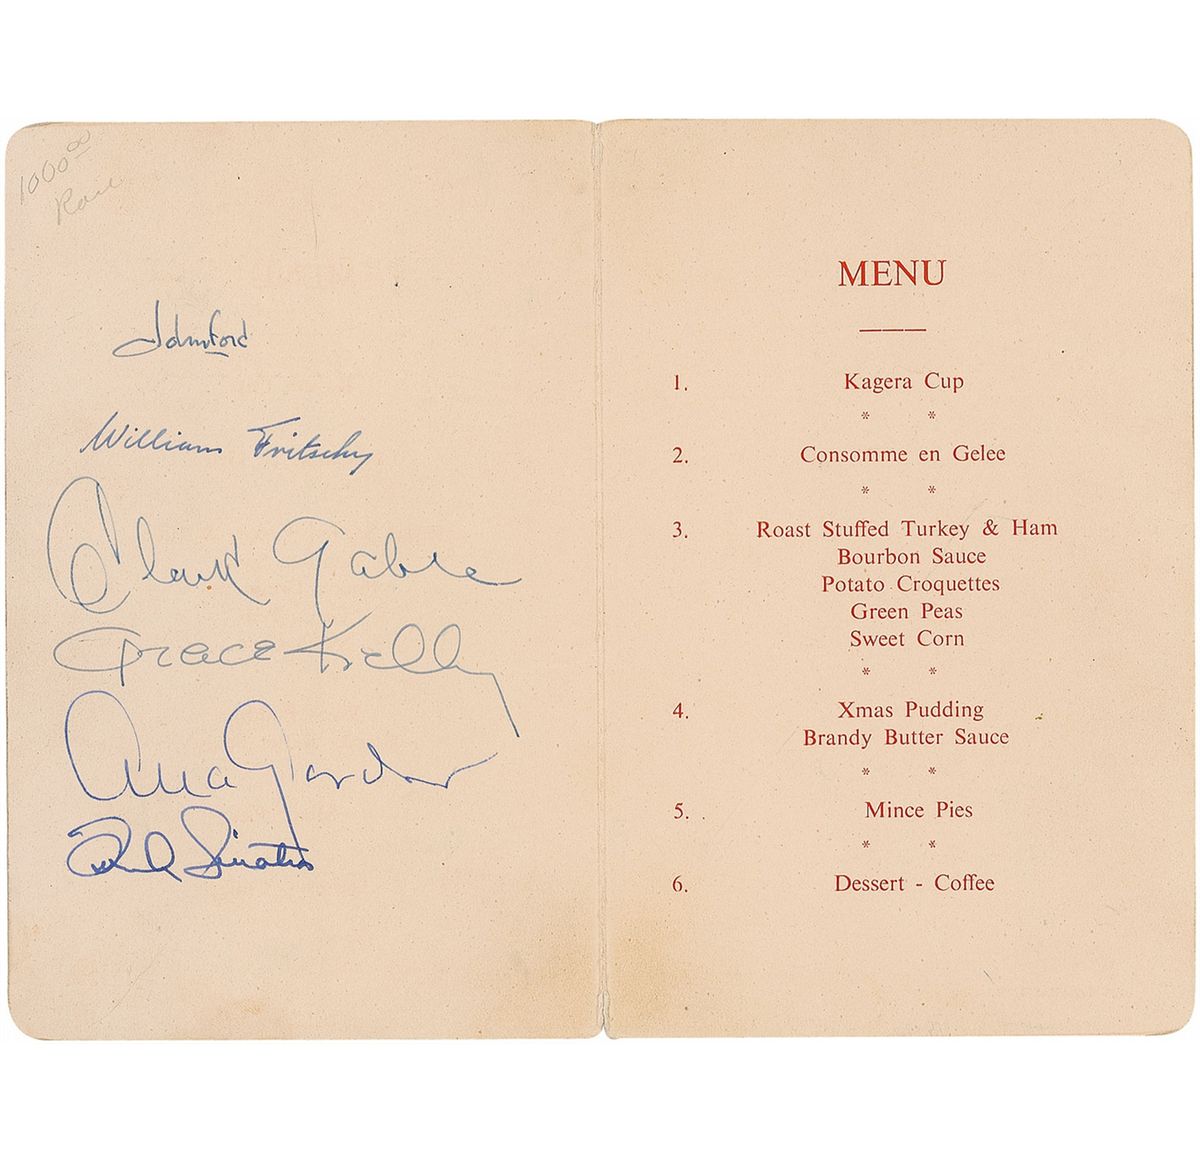 1000.00
Rare
John Ford
William Fritschy
Clark Gable
Grace Kelly
Ava Gardner
Frank Sinatra
MENU
1. Kagera Cup
* *
2. Consomme en Gelee
* *
3. Roast Stuffed Turkey & Ham
Bourbon Sauce
Potato Croquettes
Green Peas
Sweet Corn
* *
4. Xmas Pudding
Brandy Butter Sauce
* *
5. Mince Pies
* *
6. Dessert - Coffee